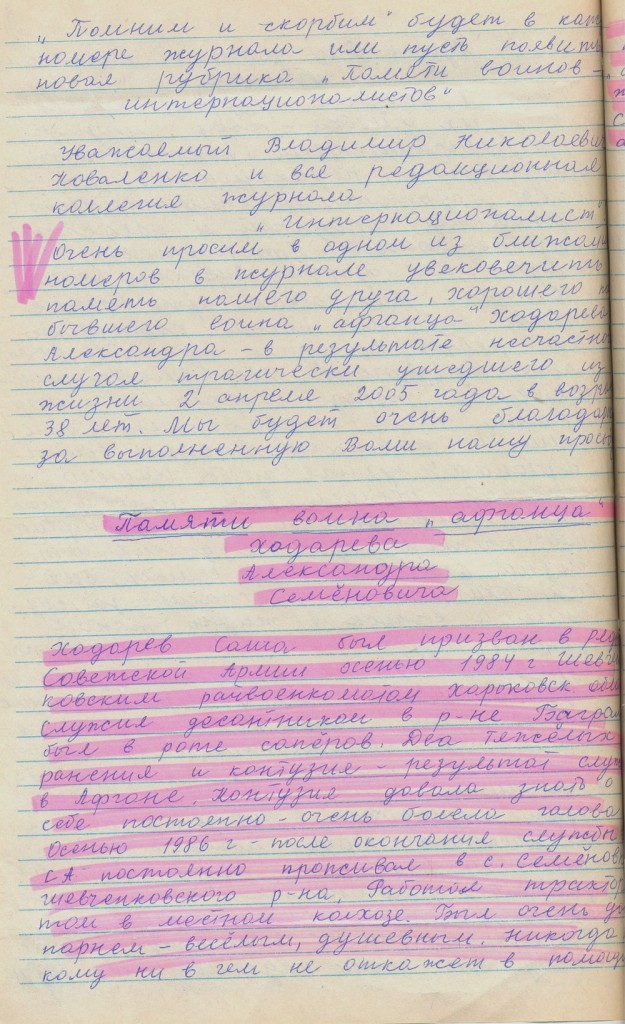 „Помним и скорбим" будет в каж
номере журнала или пусть появить
новая рубрика „Памяти воинов –
интернационалистов"
Уважаемый Владимир Николаевич
Коваленко и вся редакционная
коллегия журнала
„Интернационалист"
Очень просим в одном из ближай
номеров в журнале увековечить
память нашего друга, хорошего
бывшего воина „афганца" Ходарева
Александра – в результате несчастно
случая трагически ушедшего из
жизни 2 апреля 2005 года в возра
38 лет. Мы будет очень благодар
за выполненную Вами нашу прось
Памяти воина „афганца"
Ходарева
Александра
Семёновича
Ходарев Саша был призван в ряды
Советской Армии осенью 1984 г Шевчен
ковским райвоенкоматом Харьковск. обл
Служил десантником в р-не Баграм
был в роте сапёров. Два тяжёлых
ранения и контузия – результат служ
в Афгане. Контузия давала знать о
себе постоянно – очень болела голова
Осенью 1986 г – после окончания службы
СА постоянно проживал в с. Семёновк
Шевченковского р-на. Работал трактор
том в местном колхозе. Был очень
парнем – весёлым, душевным. Никогда
кому ни в чем не откажет в помощи